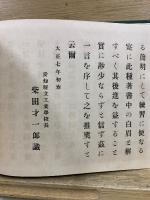 る簡明にして練習に便なる
寔に此種著書中の白眉と謂
すべく其後進を益すること
實に尠少ならずと信ず茲に
一言を序して之を推奬すと
云爾
大正七年初春
愛知縣立工業學校長
柴田才一郎識